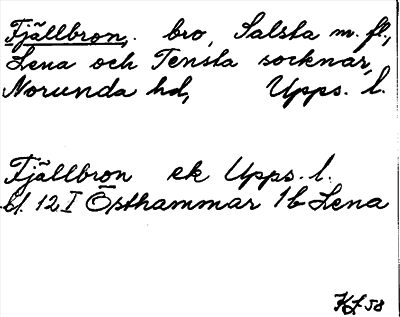 Fjällbron, bro, Salsta m. fl.,
Lena och Tensta socknar,
Norunda hd, Upps. l.
Fjällbron ek Upps. l.
bl. 12 I Östhammar 1b Lena
KL 58